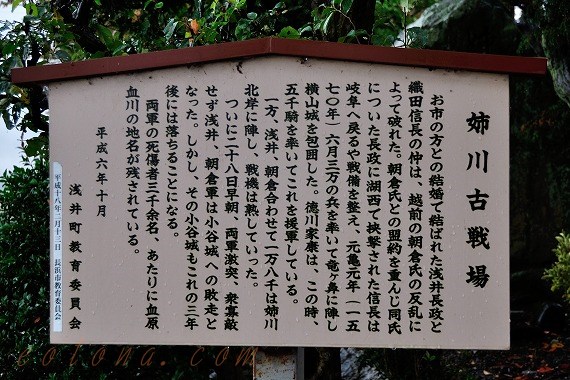 姉川古戦場
お市の方との結婚で結ばれた浅井長政と
織田信長の仲は、越前の朝倉氏の反乱に
よって破れた。朝倉氏との盟約を重んじ同氏
についた長政に湖西で挟撃された信長は
岐阜へ戻るや戦備を整え、元亀元年(一五
七〇年)六月三万の兵を率いて竜ヶ鼻に陣し
横山城を包囲した。徳川家康は、この時、
五千騎を率いてこれを援軍している。
一方、浅井、朝倉合わせて一万八千は姉川
北岸に陣し、戦機は熟していった。
ついに二十八日早朝、両軍激突、衆寡敵
せず浅井、朝倉軍は小谷城への敗走と
なった。しかし、その小谷城もこれの三年
後には落ちることになる。
両軍の死傷者三千余名、あたりに血原
血川の地名が残されている。
平成六年十月
浅井町教育委員会
平成十八年二月十三日 長浜市教育委員会
eotona.com